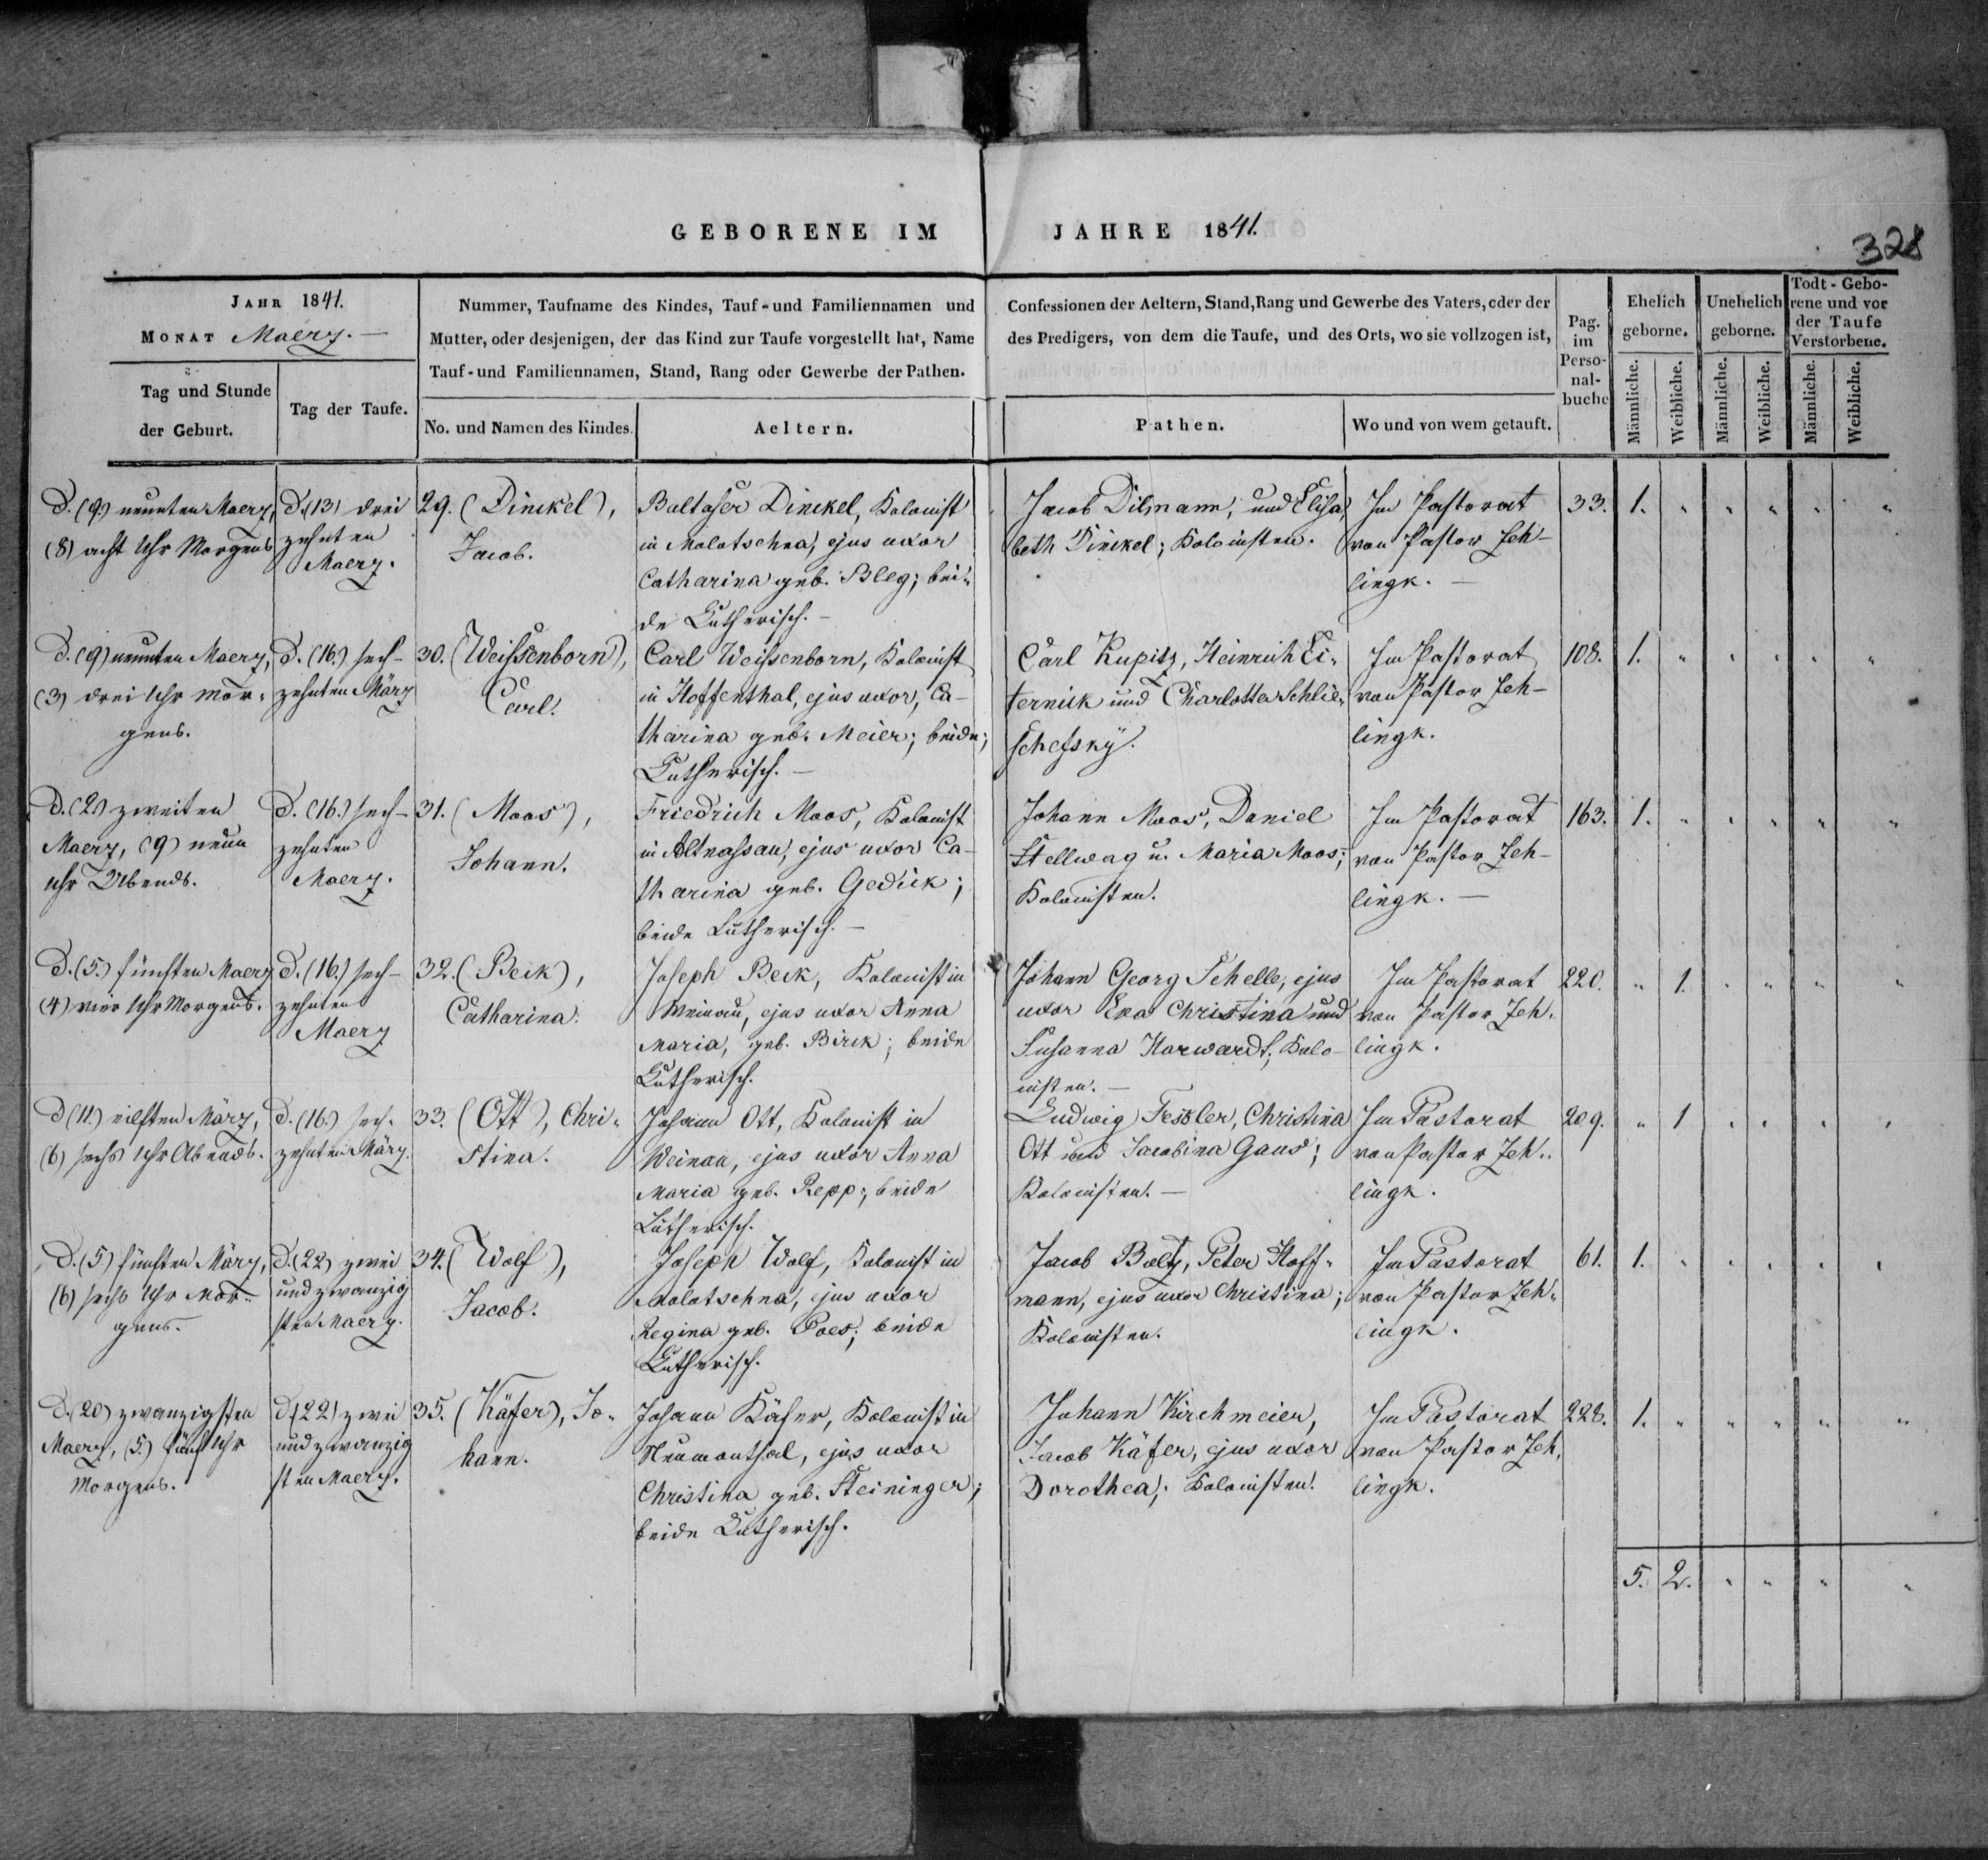 GEBORENE IM JAHRE 1841.
328
JAHR 1841.
MONAT Maerz. —
Tag und Stunde
der Geburt.
Tag der Taufe.
Nummer, Taufname des Kindes, Tauf- und Familiennamen und
Mutter, oder desjenigen, der das Kind zur Taufe vorgestellt hat, Name
Tauf- und Familiennamen, Stand, Rang oder Gewerbe der Pathen.
No. und Namen des Kindes.
Aeltern.
Confessionen der Aeltern, Stand, Rang und Gewerbe des Vaters, oder der
des Predigers, von dem die Taufe, und des Orts, wo sie vollzogen ist,
Pathen.
Wo und von wem getauft.
Pag.
im
Perso-
nal-
buche
Ehelich
geborne.
Unehelich
geborne.
Todt-Gebo-
rene und vor
der Taufe
Verstorbene.
Männliche.
Weibliche.
Männliche.
Weibliche.
Männliche.
Weibliche.
D. (9.) neunten Maerz,
(8) acht Uhr Morgens
D. (13) drei
zehnten
Maerz.
29. (Dinckel),
Jacob.
Baltaser Dinckel, Kolonist
in Molotschna, ejus uxor
Catharina geb. Bleg; bei-
de Lutherisch. —
Jacob Dilmann, und Elisa
beth Dinckel; Kolonisten.
Im Pastorat
von Pastor Zeh-
lingk. —
33. 1. " " " " "
D. (9) neunten Maerz,
(3) drei Uhr Mor-
gens.
D. (16.) sech-
zehnten März
30. (Weissenborn),
Carl.
Carl Weissenborn, Kolonist
in Hoffenthal, ejus uxor, Ca-
tharina geb. Meier; beide;
Lutherisch. —
Carl Kupitz, Heinrich Li-
ternick und Charlotte Schlie-
schefsky.
Im Pastorat
von Pastor Zeh-
lingk.
108. 1. " " " " "
D. (2.) zweiten
Maerz, (9) neun
Uhr Abends.
D. (16.) sech-
zehnten
Maerz.
31. (Moos),
Johann.
Friedrich Moos, Kolonist
in Altnassau, ejus uxor Ca-
tharina geb. Gedick;
beide Lutherisch. —
Johann Moos, Daniel
Stellwag u. Maria Moos;
Kolonisten.
Im Pastorat
von Pastor Zeh-
lingk. —
163. 1. " " " " "
D. (5.) fünften Maerz
(4) vier Uhr Morgens.
D. (16.) sech-
zehnten
Maerz
32. (Beck),
Catharina.
Joseph Beck, Kolonist in
Weinau, ejus uxor Anna
Maria, geb. Birck; beide
Lutherisch.
Johann Georg Schelle, ejus
uxor Eva Christina und
Susanna Harwardt; Kolo-
nisten. —
Im Pastorat
von Pastor Zeh-
lingk.
220. " 1. " " " "
D. (11.) eilften März,
(6) sechs Uhr Abends.
D. (16.) sech-
zehnten März.
33. (Ott), Chri-
stina.
Johann Ott, Kolonist in
Weinau, ejus uxor Anna
Maria geb. Repp; beide
Lutherisch.
Ludwig Fessler, Christina
Ott und Jacobina Gaus;
Kolonisten. —
Im Pastorat
von Pastor Zeh-
lingk.
209. " 1 " " " "
D. (5) fünften März,
(6) sechs Uhr Mor-
gens.
D. (22) zwei
und zwanzig
sten Maerz.
34. (Wolf),
Jacob.
Joseph Wolf, Kolonist in
Molotschna, ejus uxor
Regina geb. Poes; beide
Lutherisch.
Jacob Boltz, Peter Hoff-
mann, ejus uxor Christina;
Kolonisten.
Im Pastorat
von Pastor Zeh-
lingk.
61. 1. " " " " "
D. (20) zwanzigsten
Maerz, (5.) fünf Uhr
Morgens.
D. (22) zwei
und zwanzig
sten Maerz.
35. (Käfer), Jo-
hann.
Johann Käfer, Kolonist in
Neumonthal, ejus uxor
Christina geb. Steininger;
beide Lutherisch.
Johann Kirchmeier,
Jacob Käfer, ejus uxor
Dorothea; Kolonisten.
Im Pastorat
von Pastor Zeh-
lingk.
228. 1. " " " " "
5. 2. " " " "